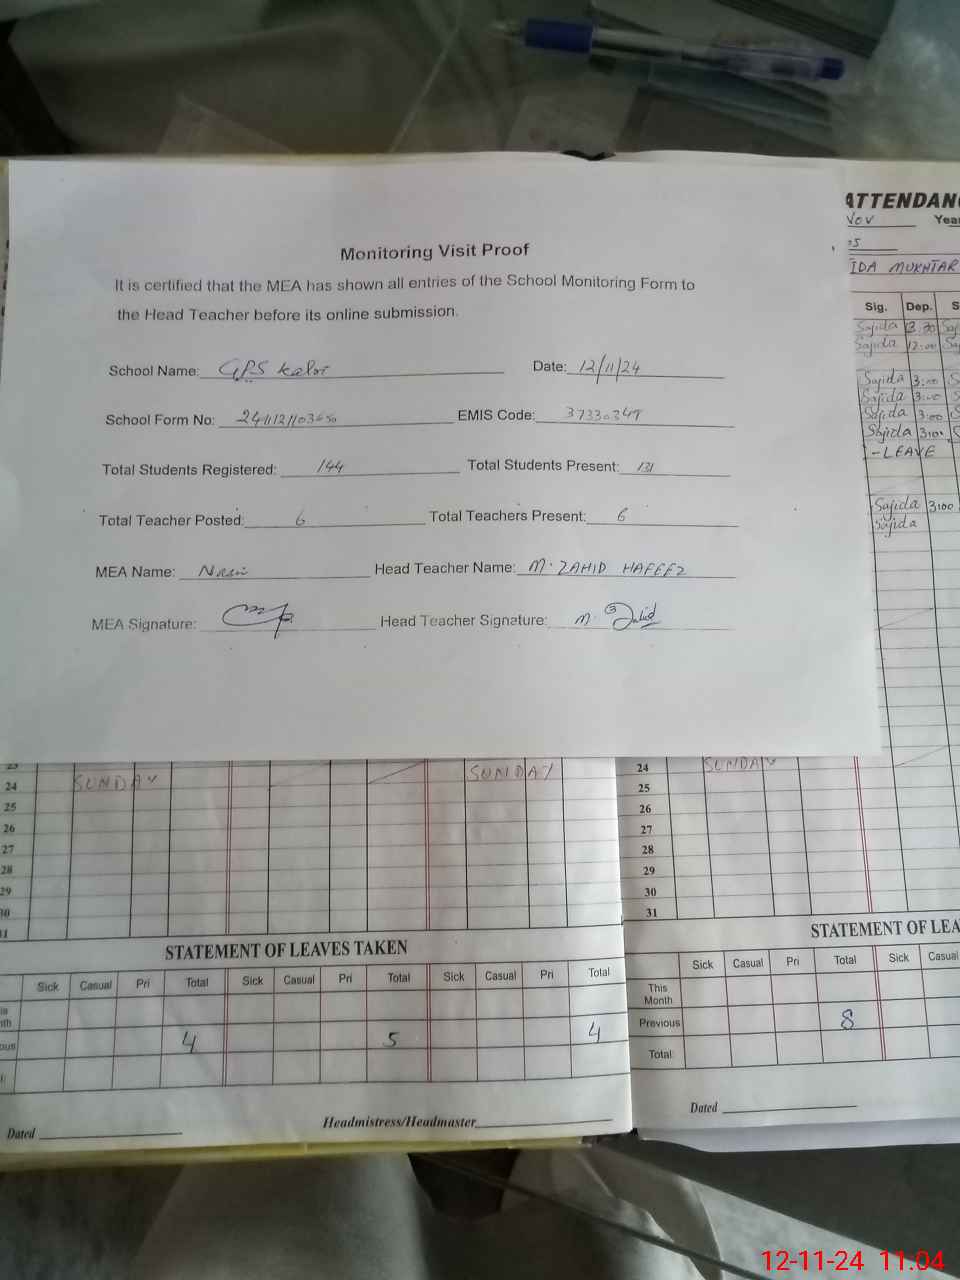 Monitoring Visit Proof
It is certified that the MEA has shown all entries of the School Monitoring Form to
the Head Teacher before its online submission.
School Name: GPS Kalor Date: 12/11/24
School Form No: EMIS Code: 37330347
Total Students Registered: 144 Total Students Present: 131
Total Teacher Posted: 6 Total Teachers Present: 6
MEA Name: Head Teacher Name: M. ZAHID HAFEEZ
MEA Signature: Head Teacher Signature: M.
ATTENDAN
Nov Yea
IDA MUKHTAR
Sig. Dep. S
Sajida 3.30
Sajida 12:00
Sajida 3:00
Sajida 3:00
Sajida 3:00
Sajida 3:00
- LEAVE
Sajida 3:00
Sajida
23
24 SUNDAY SUNDAY
25
26
27
28
29
30
31
STATEMENT OF LEAVES TAKEN
Sick Casual Pri Total Sick Casual Pri Total Sick Casual Pri Total
4 5 4
Dated Headmistress/Headmaster
24 SUNDAY
25
26
27
28
29
30
31
STATEMENT OF LEA
Sick Casual Pri Total Sick Casual
This
Month
Previous 8
Total
Dated
12-11-24 11:04